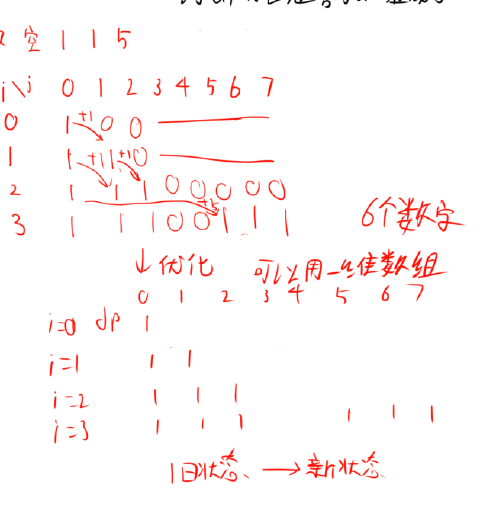 空 1 1 5
i\j 0 1 2 3 4 5 6 7
0 1 +1 0 0
1 1 +1 1 +1 0
2 1 1 1 0 0 0 0 0 +5
3 1 1 1 0 0 1 1 1 6个数字
↓优化 可以用一维数组
0 1 2 3 4 5 6 7
i=0 dp 1
i=1 1 1
i=2 1 1 1
i=3 1 1 1 1 1 1
旧状态 → 新状态